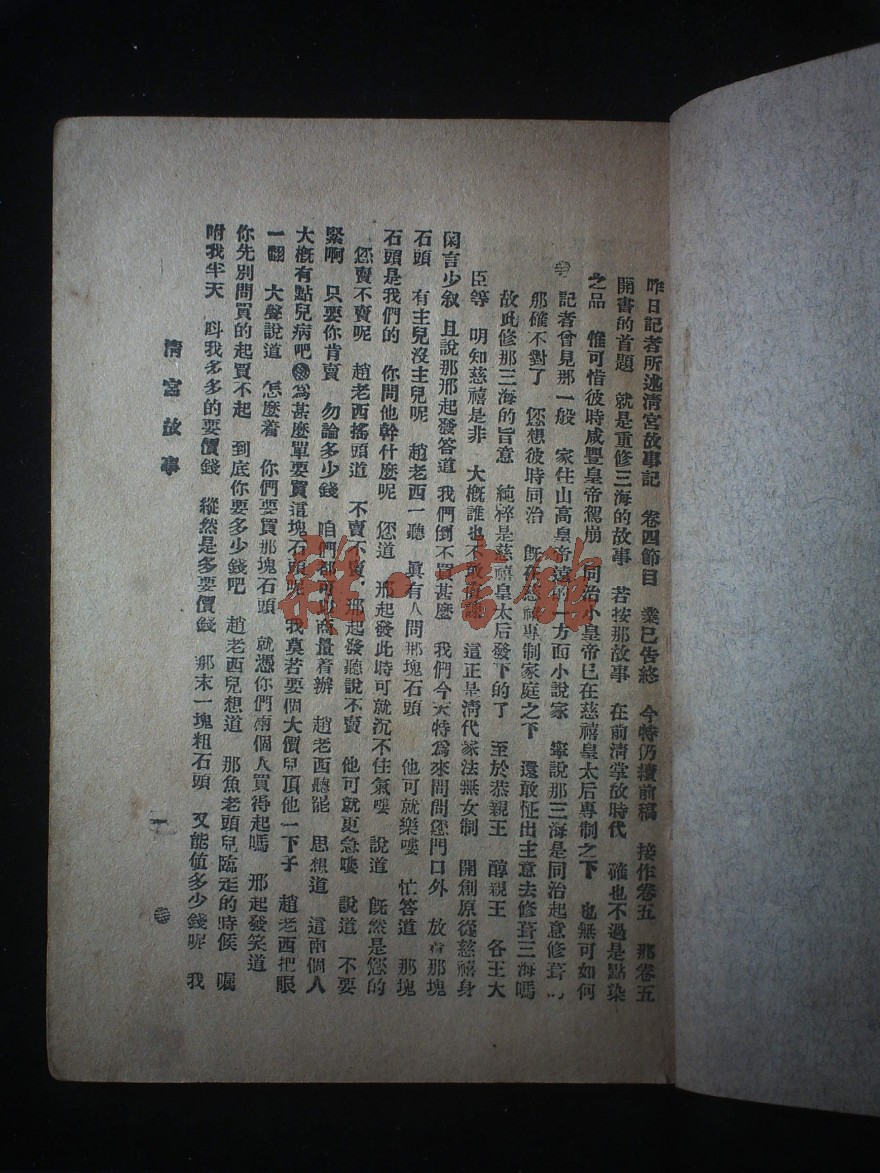 昨日記者所述清宮故事記　卷四節目　業已告終　今特仍續前稿　接作卷五　那卷五
開書的首題　就是重修三海的故事　若按那故事　在前清掌故時代　確也不過是點染
之品　惟可惜彼時咸豐皇帝駕崩　同治小皇帝已在慈禧皇太后專制之下　也無可如何
記者曾見那一般　家住山高皇帝遠的一方面小說家　寧說那三海是同治起意修葺
那確不對了　您想彼時同治　既在慈禧專制家庭之下　還敢怔出主意去修葺三海嗎
故此修那三海的旨意　純粹是慈禧皇太后發下的了　至於恭親王　醇親王　各王大
臣等　明知慈禧是非　大概誰也不敢　這正是清代家法無女制　開創原從慈禧身
閑言少叙　且說那那起發答道　我們倒不買甚麽　我們今天特爲來問問您門口外　放着那塊
石頭　有主兒沒主兒呢　趙老西一聽　眞有人問那塊石頭　他可就樂嘍　忙答道　那塊
石頭是我們的　你問他幹什麽呢　您道　那起發此時可就沉不住氣嘍　說道　既然是您的
您賣不賣呢　趙老西搖頭道　不賣不賣　那起發聽說不賣　他可就更急嘍　說道　不要
緊啊　只要你肯賣　勿論多少錢　咱們都可以商量着辦　趙老西聽罷　思想道　這兩個人
大概有點兒病吧　爲甚麽單要買這塊石頭呢　我莫若要個大價兒頂他一下子　趙老西把眼
一翻　大聲說道　怎麽着　你們要買那塊石頭　就憑你們兩個人買得起嗎　那起發笑道
你先別問買的起買不起　到底你要多少錢吧　趙老西兒想道　那魚老頭兒臨走的時候　囑
咐我半天　叫我多多的要價錢　縱然是多要價錢　那末一塊粗石頭　又能値多少錢呢　我
清宮故事
一
雜·書館